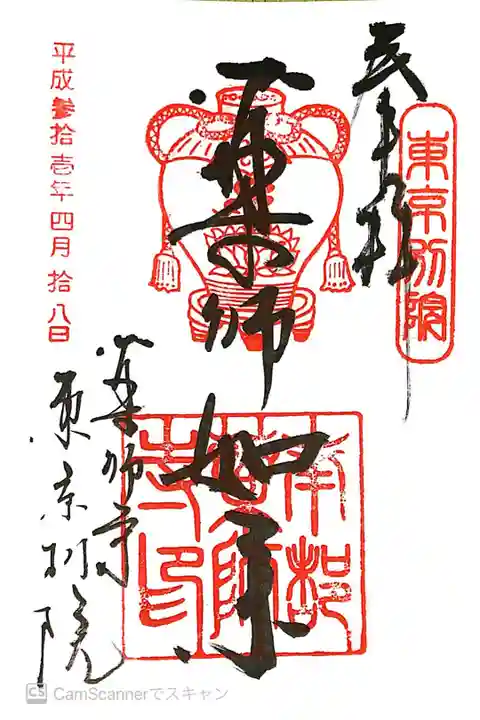 奉拝
東京別院
薬師如来
南都
薬師
寺印
平成参拾壱年四月拾八日
薬師寺
東京別院
CS CamScannerでスキャン